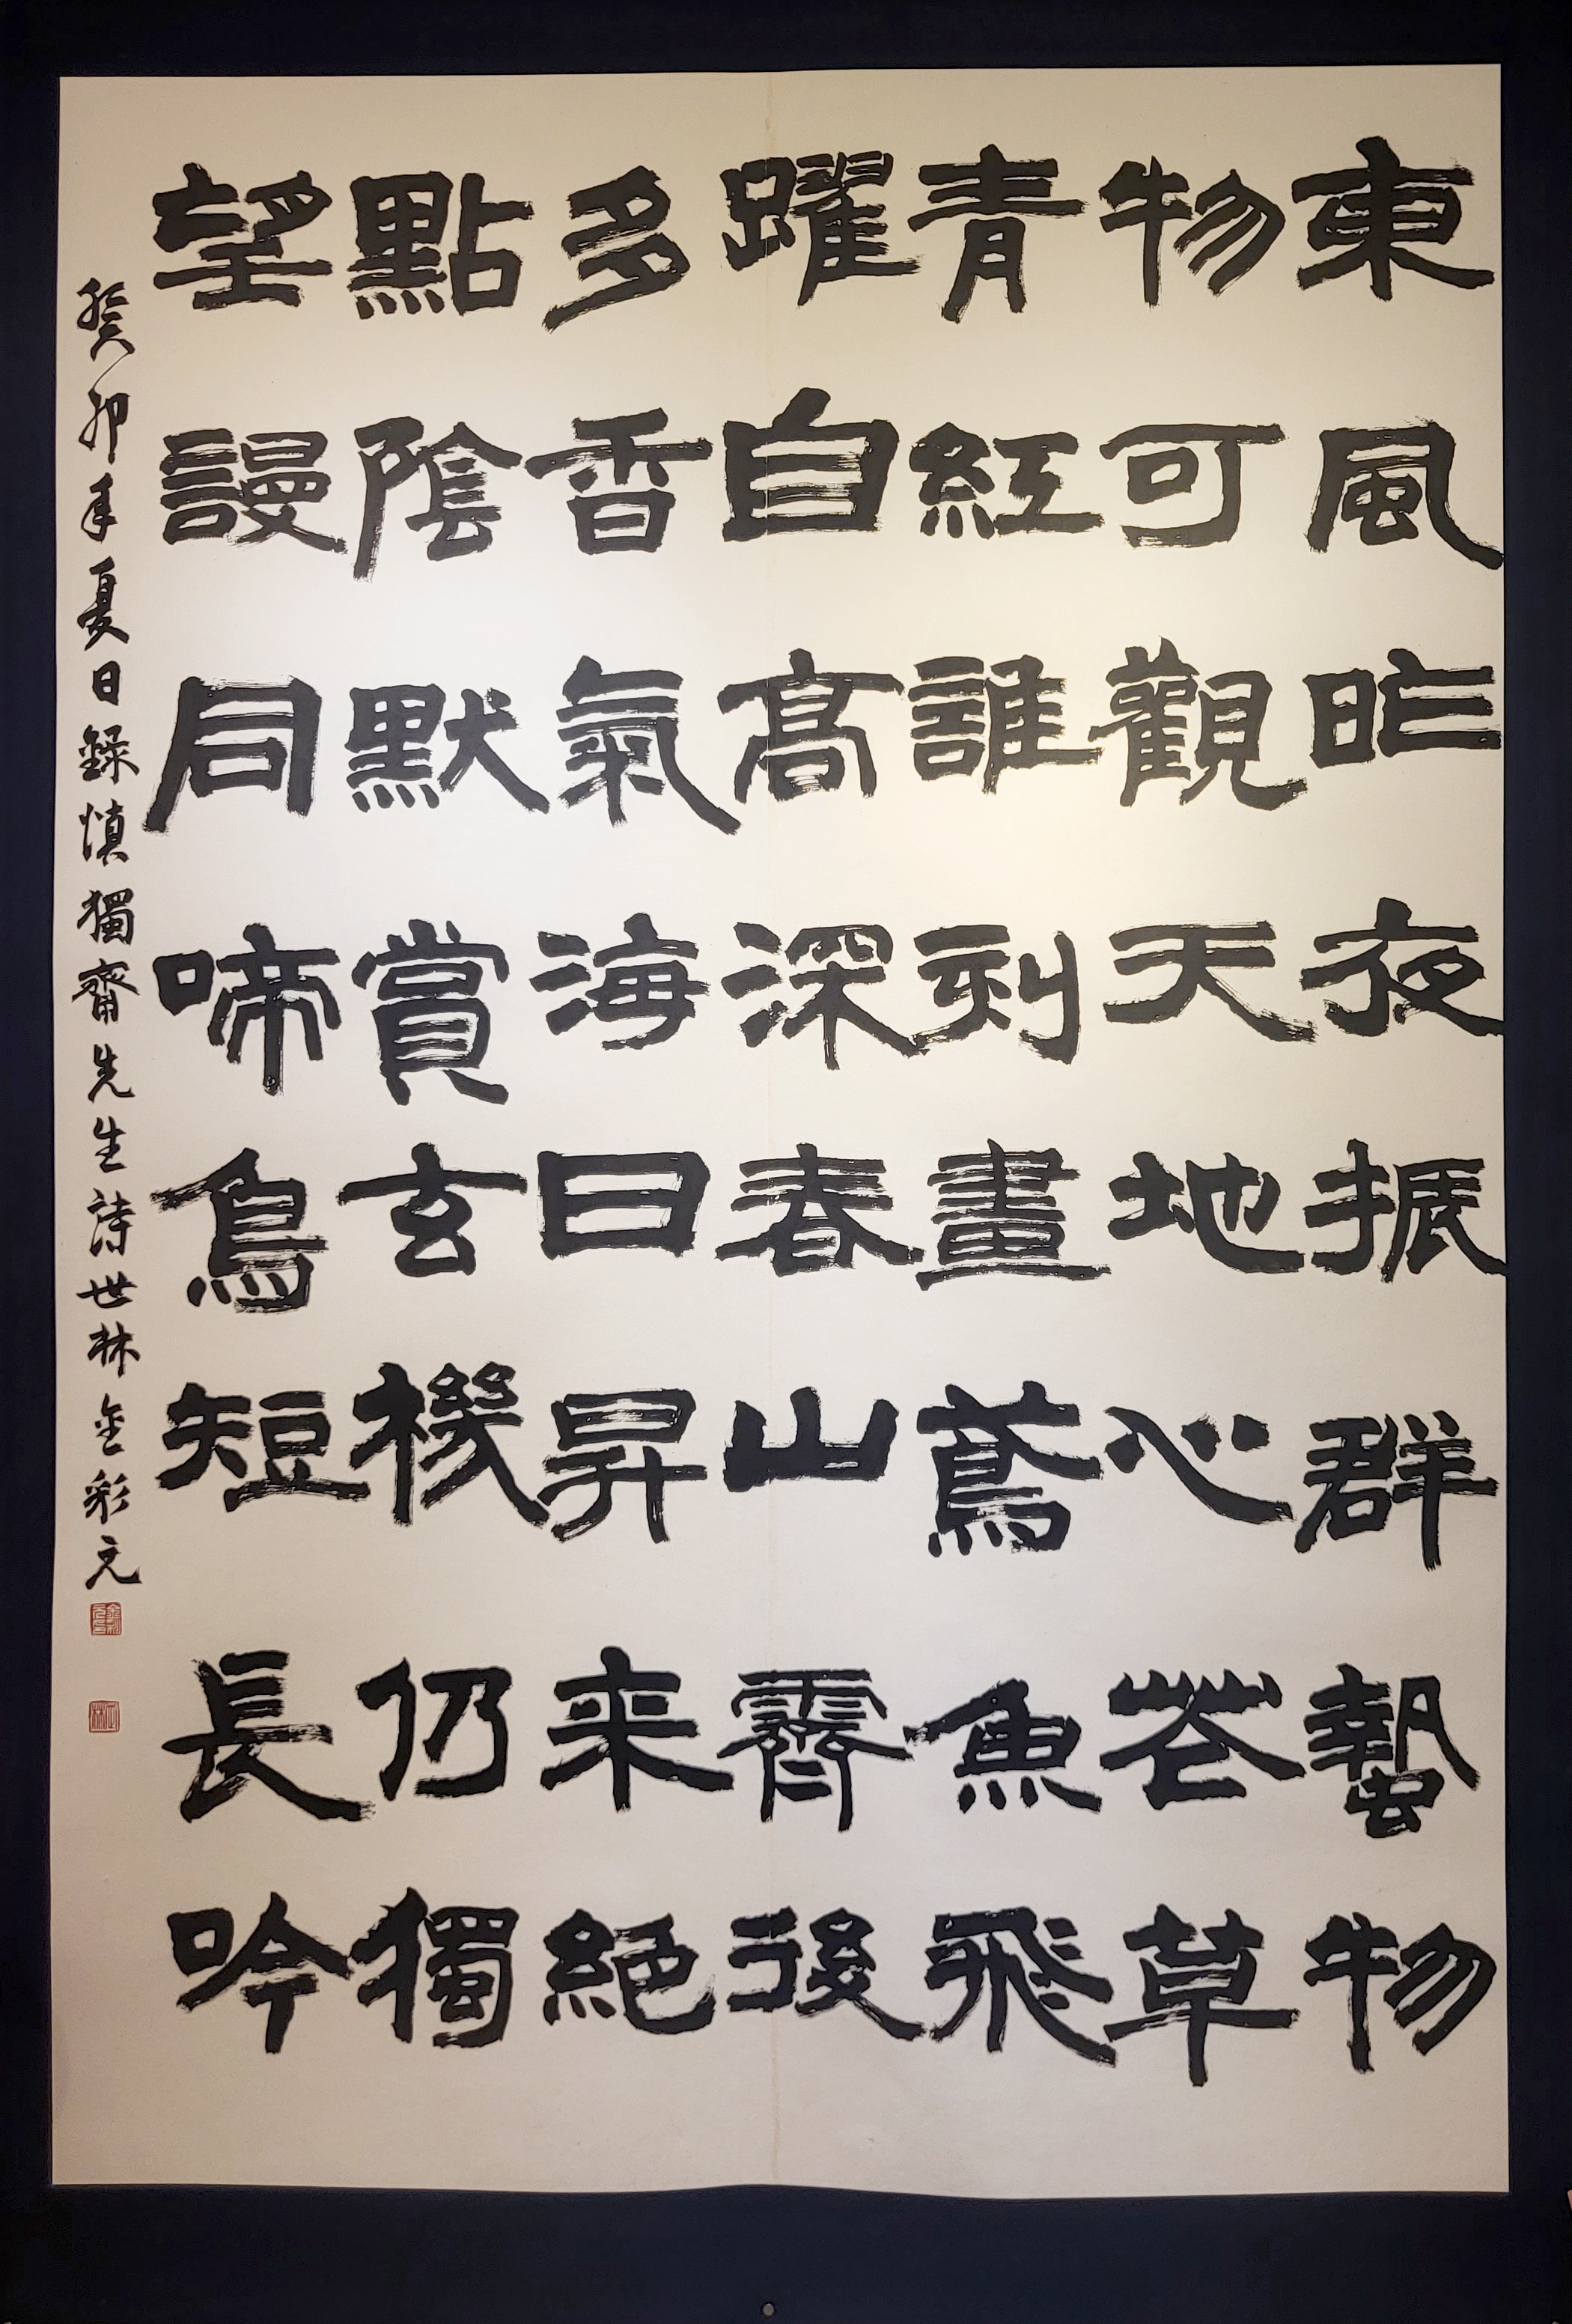 東風昨夜振群蟄物
物可觀天地心苍草
青紅誰刻畫鳶魚飛
躍自高深春山霽後
多香氣海日昇来絕
點陰默賞玄機仍獨
望謾同啼鳥短長吟
癸卯年夏日錄慎獨齋先生詩世林金彩元